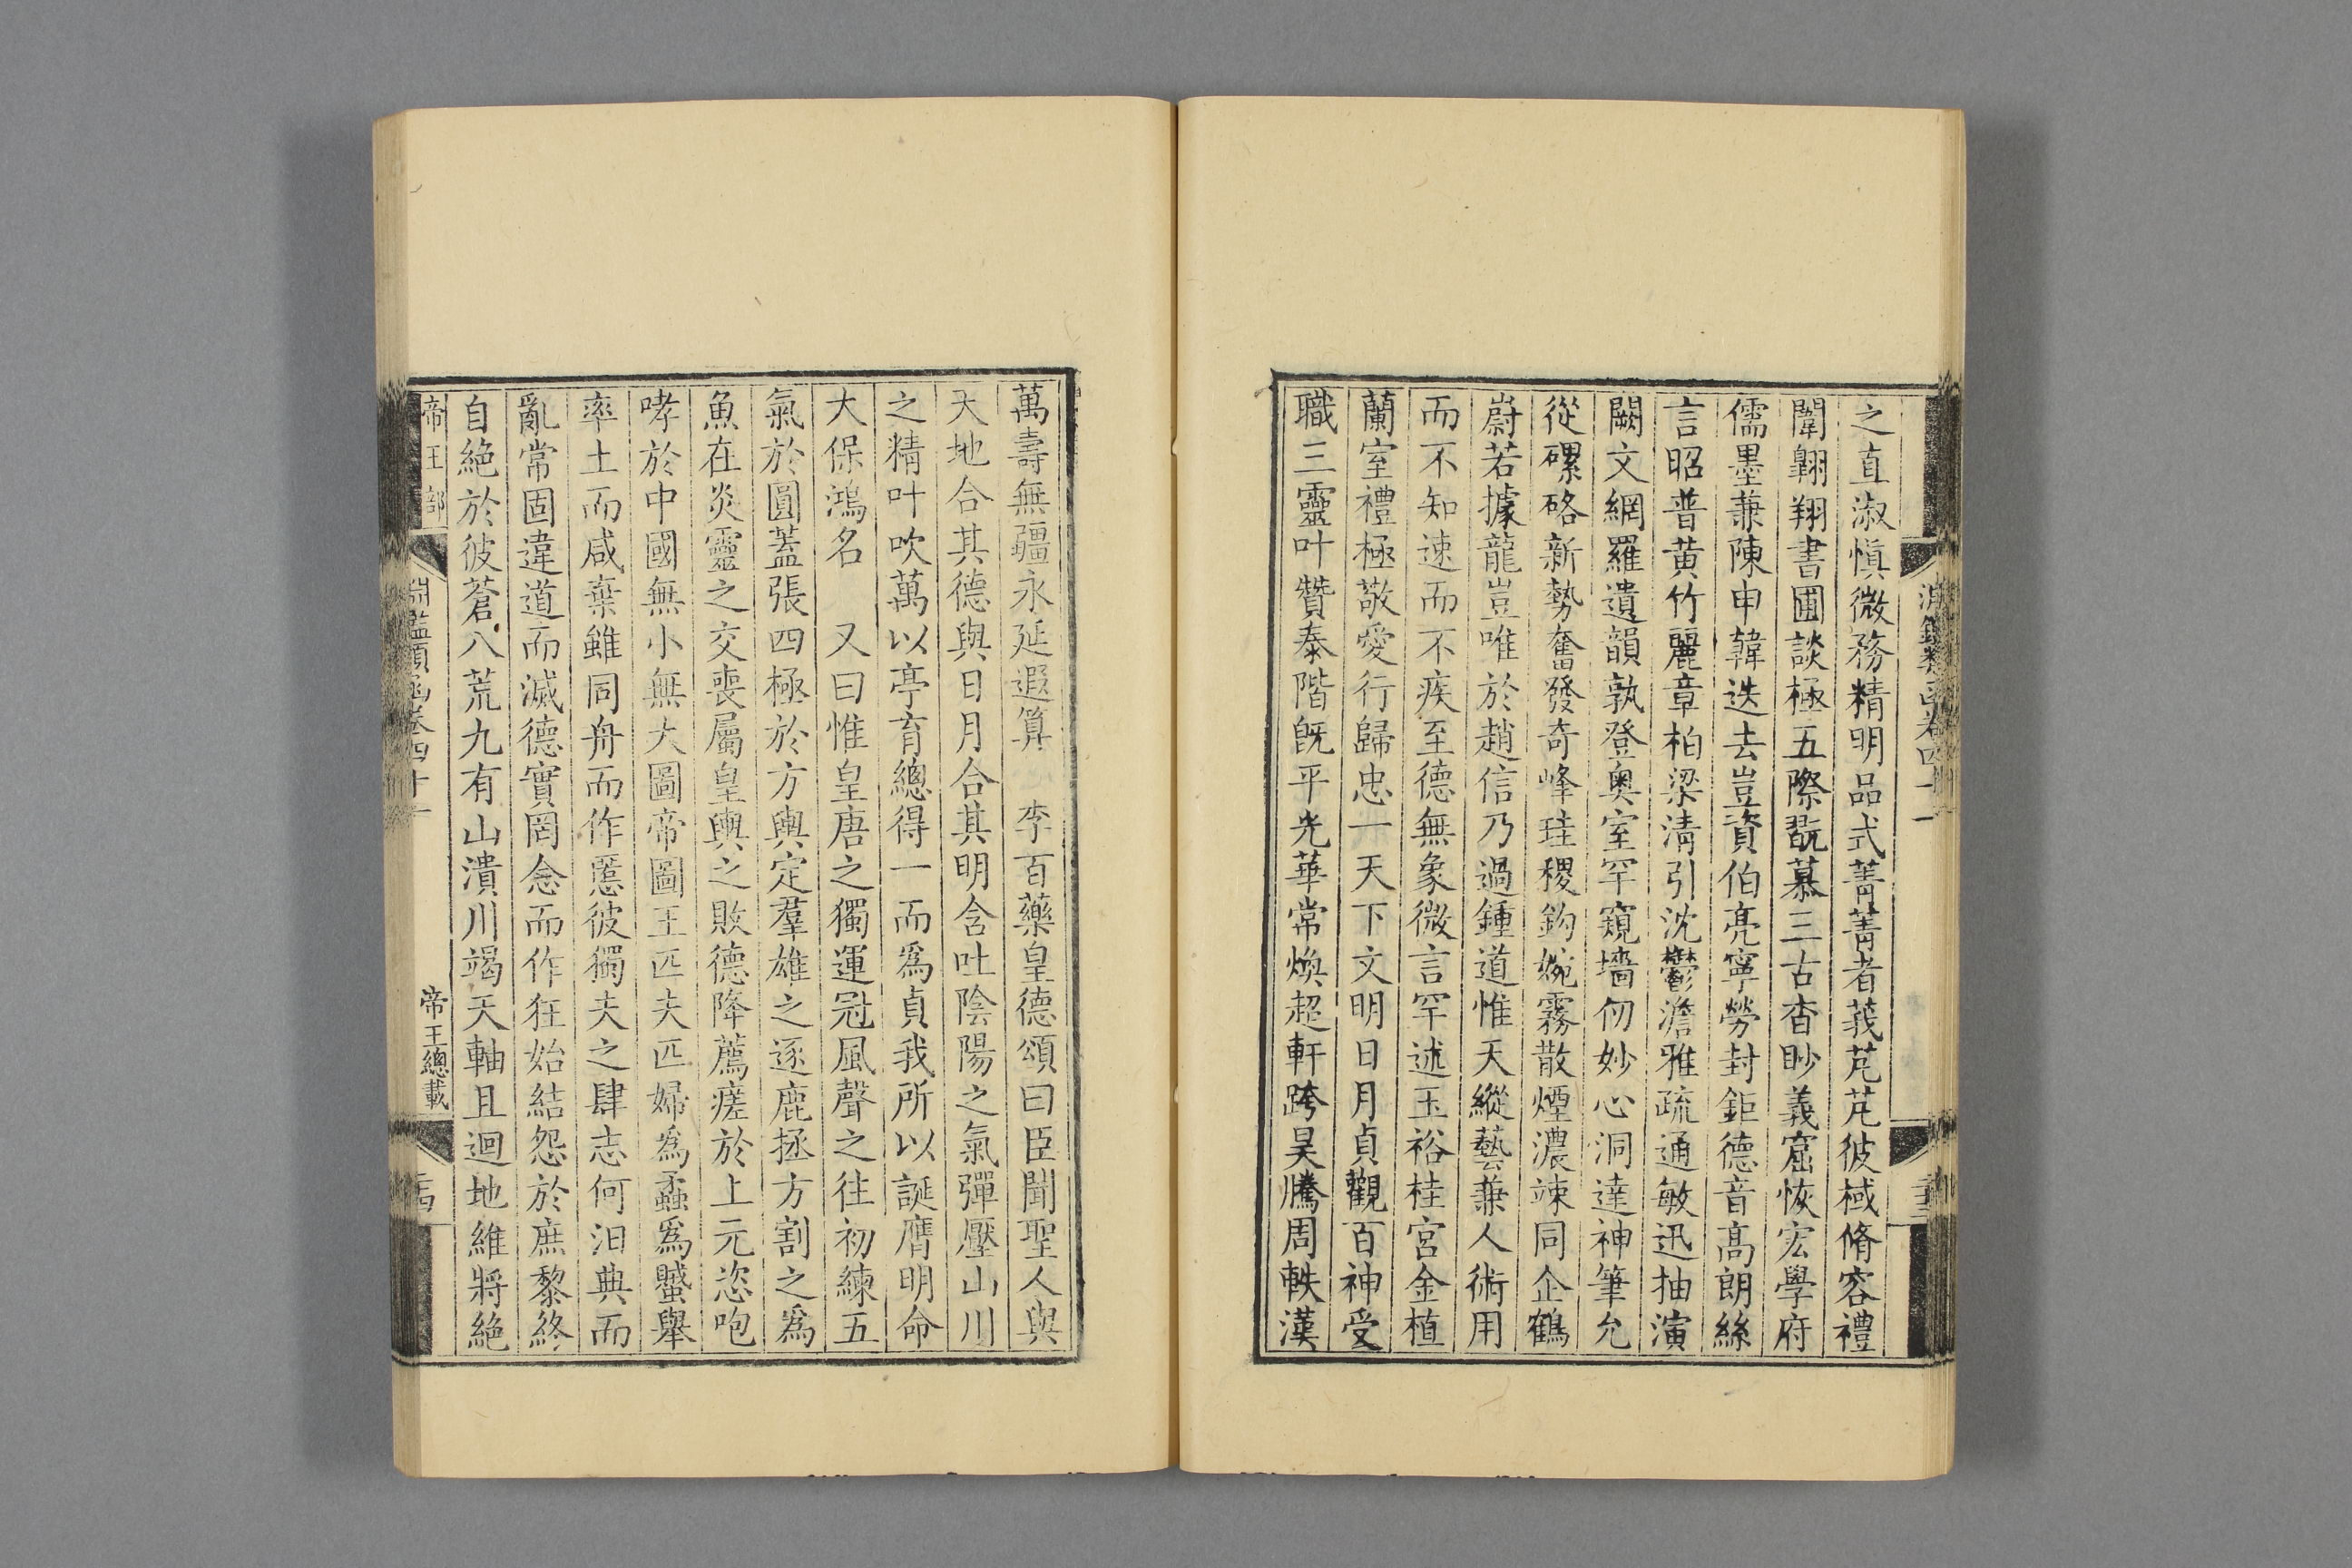 之直淑慎微務精明品式菁菁者莪芃芃彼棫脩容禮
闈翺翔書圃談極五際翫慕三古杳眇義窟恢宏學府
儒墨兼陳申韓迭去豈資伯亮寧勞封鉅德音高朗絲
言昭普黄竹麗章柏梁清引沈鬱澹雅疏通敏迅抽演
闕文網羅遺韻孰登奥室罕窺墻仞妙心洞達神筆允
從磥硌新勢奮發奇峰珪稷鈞婉霧散煙濃竦同企鶴
蔚若據龍豈唯於趙信乃過鍾道惟天縱藝兼人術用
而不知速而不疾至德無象微言罕述玉裕桂宮金植
蘭室禮極敬愛行歸忠一天下文明日月貞觀百神受
職三靈叶贊泰階旣平光華常煥超軒跨昊騰周軼漢
萬壽無疆永延遐算 李百藥皇德頌曰臣聞聖人與
天地合其德與日月合其明含吐陰陽之氣彈壓山川
之精叶吹萬以亭育總得一而爲貞我所以誕膺明命
大保鴻名 又曰惟皇唐之獨運冠風聲之往初練五
氣於圓蓋張四極於方輿定羣雄之逐鹿拯方割之爲
魚在炎靈之交喪屬皇輿之敗德降薦瘥於上元恣咆
哮於中國無小無大圖帝圖王匹夫匹婦爲蟊爲賊舉
率土而咸棄雖同舟而作慝彼獨夫之肆志何汩典而
亂常固違道而滅德實罔念而作狂始結怨於庶黎終
自絶於彼蒼八荒九有山潰川竭天軸且迴地維將絶
帝王部 淵鑑類函卷四十一 帝王總載 二十四